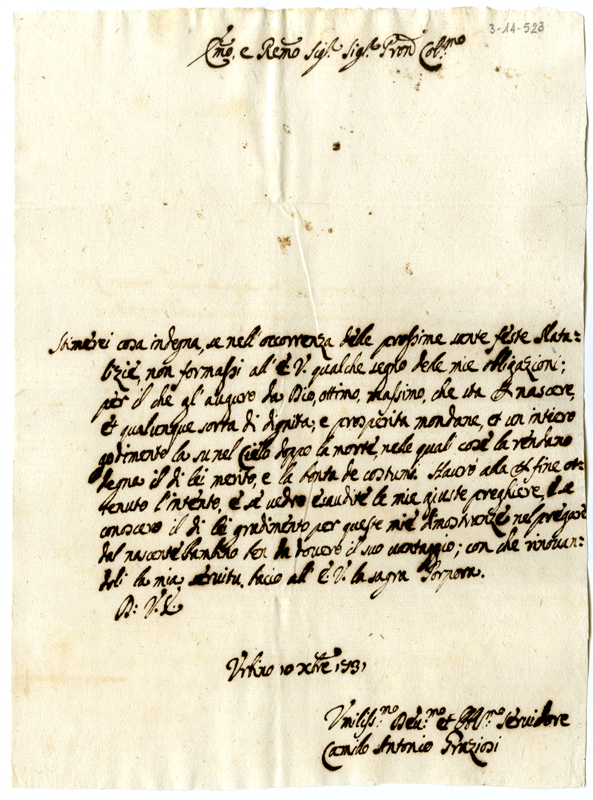 3-14-523
Emo, e Remo Sig.r Sig.r Pron Col.mo
Stimerei cosa indegna, se nell'occorrenza delle prossime sante feste Nata=
lizie, non formassi all'E.V. qualche segno dele mie obligazioni;
per il che gl'auguro da Dio, ottimo, massimo, che sta p nascere,
et qualunque sorta di dignità, e prosperità mondane, et un intiero
godimento la su nel Cielo doppo la morte, nele quali cose la rendano
degna il di lei merito, e la bontà de costumi. Haverò alla p fine ot=
tenuto l'intento, e se vedrò esaudite le mie giuste preghiere, e se
conoscerò il di lei gradimento per queste mie dimostranze nel pregare
dal nascente bambino ben da dovero il suo vantaggio; con che rinovan=
doli la mia servitù, bacio all'E.V. la sagra Porpora.
D: V.E.
Urbino 10 xbre 1731
Umiliss.mo Deu.mo et Obl.mo Servidore
Camilo Antonio Graziosi